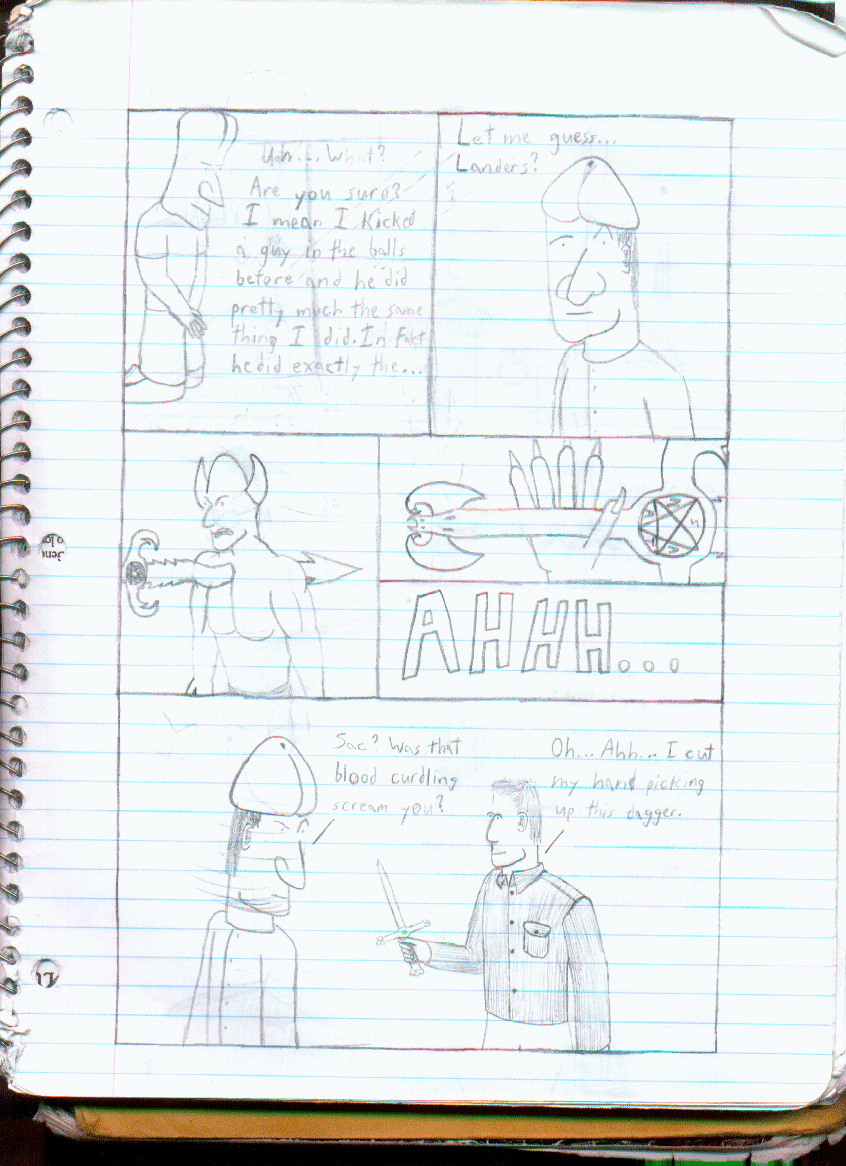 Uh... What?
Are you sure?
I mean I Kicked
a guy in the balls
before and he did
pretty much the same
thing I did. In Fact
he did exactly the...
Let me guess...
Landers?
AHHH...
Sac? Was that
blood curdling
scream you?
Oh... Ahh... I cut
my hand picking
up this dagger.